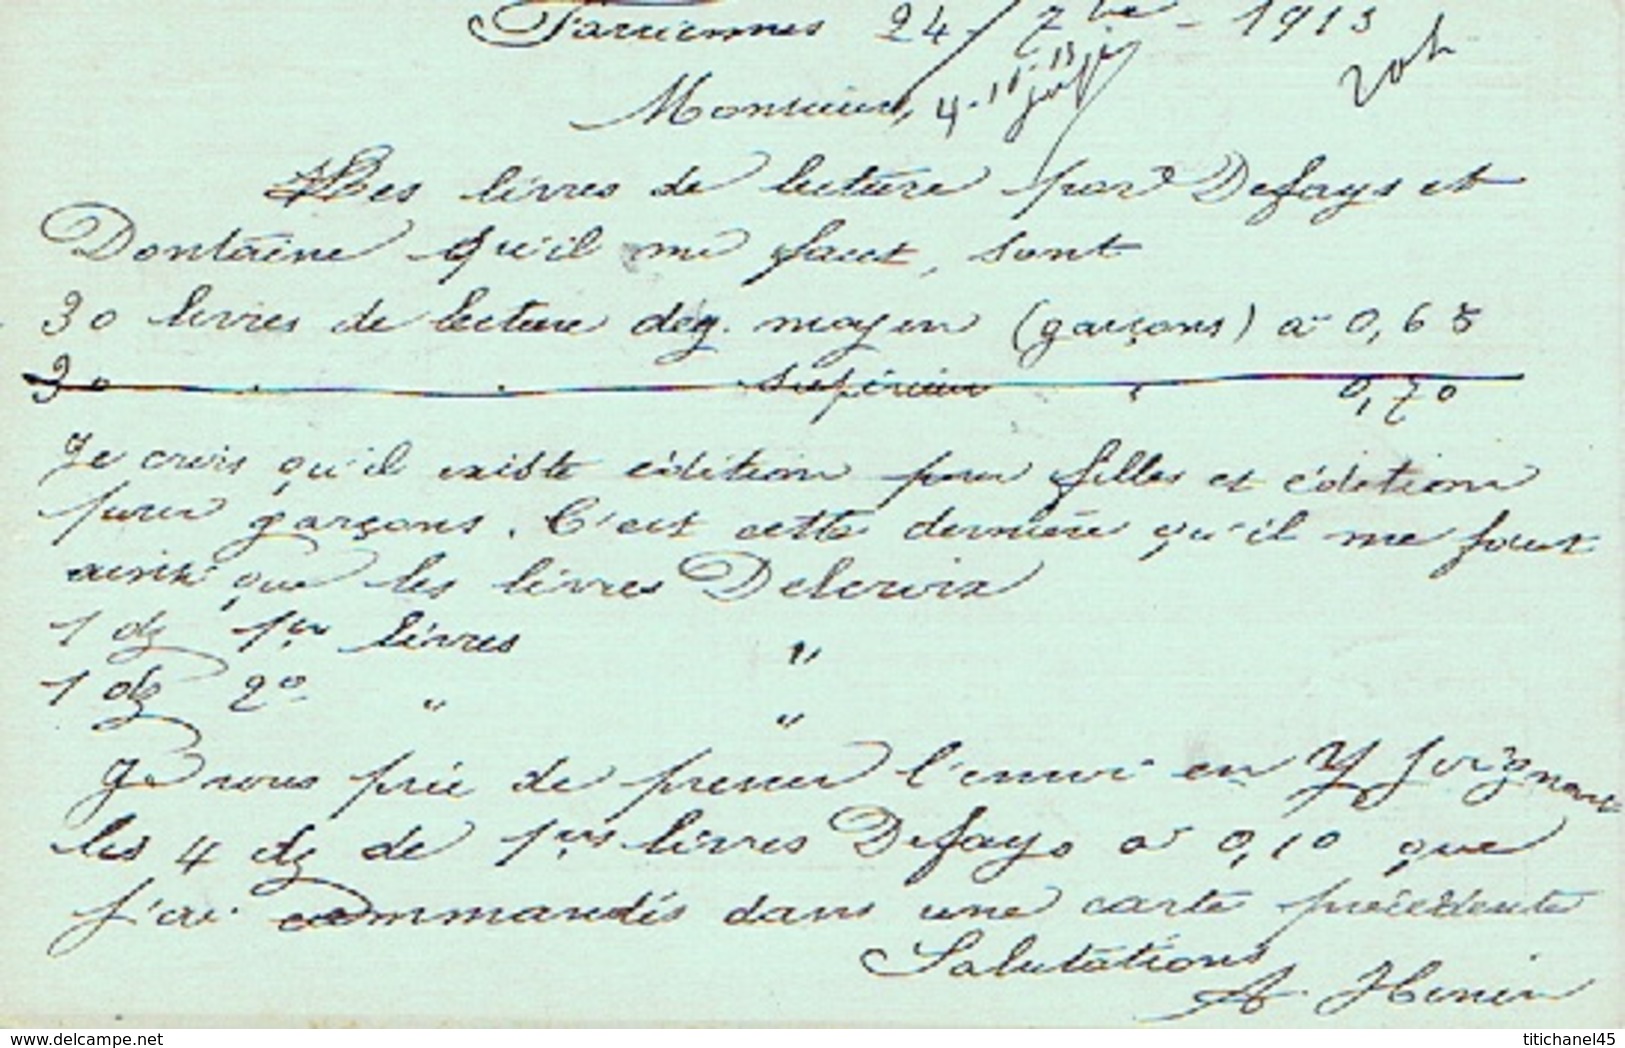 Farciennes 24 - 7bre - 1913
Monsieur,
4-10-13
20h
Les livres de lecture par Defays et
Dontaine qu'il me faut, sont
30 livres de lecture deg. moyen (garçons) à 0,65
30 " " supérieur " 0,70
Je crois qu'il existe édition pour filles et édition
pour garçons. C'est cette dernière qu'il me faut
ainsi que les livres Delcroix
1 dz 1ers livres "
1 dz 2e " "
Je vous prie de presser l'envoi en y joignant
les 4 dz de 1ers livres Defays à 0,10 que
j'ai commandés dans une carte précédente
Salutations
A. Henin
www.delcampe.net
titichanel45